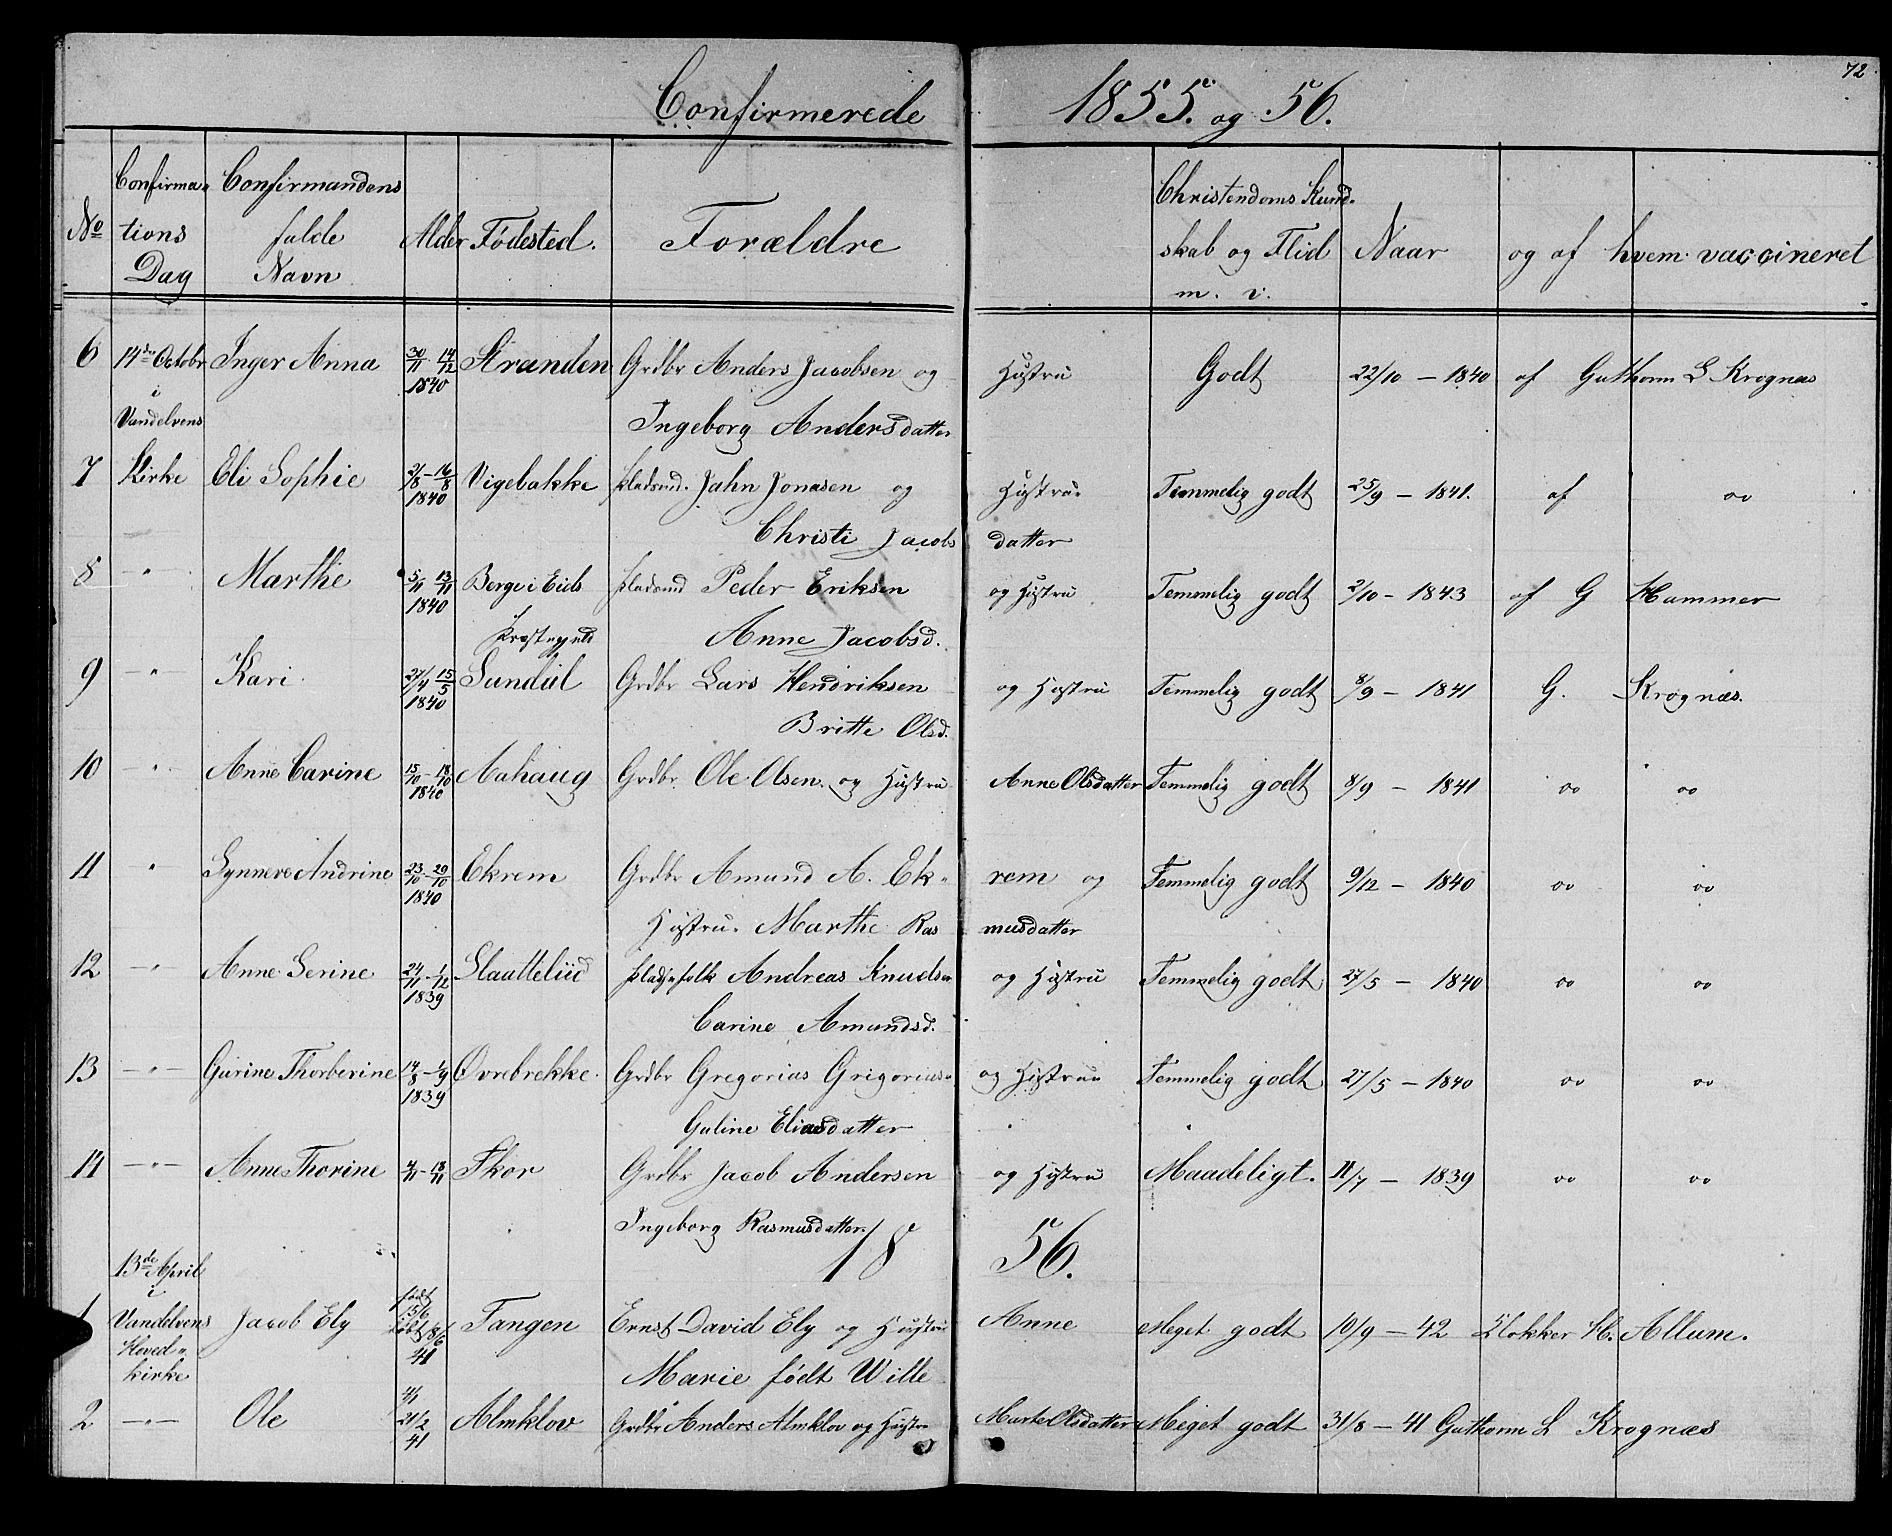 72
Confirmerede 1855. og 56.
No Confirma- tions Dag Confirmandens fulde Navn Alder Fødested. Forældre Christendoms Kund- skab og Flid m. v. Naar og af hvem vaccineret
6 14de Octobr Inger Anna 30/11 14/12 1840 Stranden Grdbr Anders Jacobsen og Hustru Godt 22/10 - 1840 af Guthorm L Krognæs
i Vandelvens Ingeborg Andersdatter
7 Kirke Eli Sophie 2/8 - 16/8 1840 Vigebakke Pladsmd. Jahn Jonasen og Hustru Temmelig godt 25/9 - 1841. af oo
Christi Jacobs datter
8 " Marthe 5/11 13/11 1840 Berge i Eids Pladsmd Peder Eriksen og Hustru Temmelig godt 2/10 - 1843 af G Hammer
Præstegjeld Anne Jacobsd.
9 " Kari 27/4 15/5 1840 Sundal Grdbr Lars Hendriksen og Hustru Temmelig godt 8/9 - 1841 G. Krognæs.
Britte Olsd.
10 " Anne Carine 15/10 - 18/10 1840 Aahaug Grdbr Ole Olsen og Hustru Anne Olsdatter Temmelig godt 8/9 - 1841 oo oo
11 " Synneve Andrine 23/10 - 29/10 1840 Ekrem Grdbr Amund A. Ek- rem og Temmelig godt 9/12 - 1840 oo oo
Hustru Marthe Ras musdatter
12 " Anne Serine 24/11 - 1/12 1839 Slaattelid Pladsefolk Andreas Knudsen og Hustru Temmelig godt 27/5 - 1840 oo oo
Carine Amundsd.
13 " Gurine Thorberine 14/8 - 1/9 1839 Øvrebrekke Grdbr Gregorius Grigorius- og Hustru Temmelig godt 27/5 - 1840 oo oo
Guline Eliasdatter
14 " Anne Thorine 4/11 - 18/11 Skor Grdbr Jacob Andersen og Hustru Maadeligt. 11/7 - 1839 oo oo
Ingeborg Rasmusdatter.
18 56.
13de April
i
1 Vandelvens Jacob Ely født 15/6 døbt 18/6 41 Tangen Ernst David Ely og Hustru Anne Meget godt 10/9 - 42 Klokker H. Allum.
Hoved- kirke Marie født Wille
2 " Ole 4/1 21/2 41 Almklov Grdbr Anders Almklov og Hustru Marte Olsdatter Meget godt 31/8 - 41 Guthorm L Krognæs